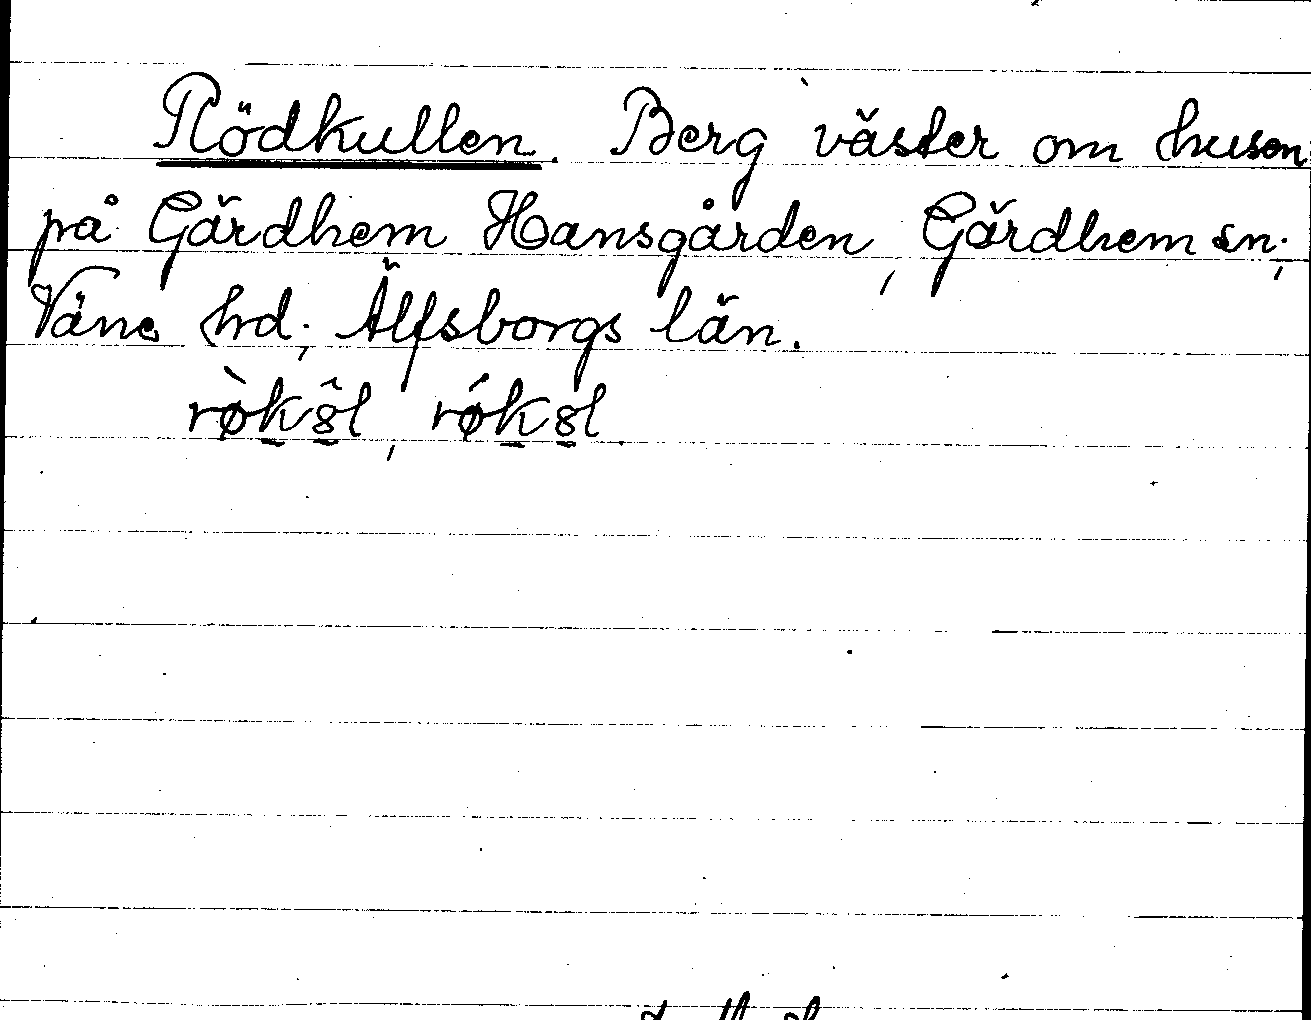 Rödkullen. Berg väster om husen
på Gärdhem Hansgården, Gärdhem sn;
Väne hd; Älfsborgs län.
rø̀k8̂l, rǿk8l.